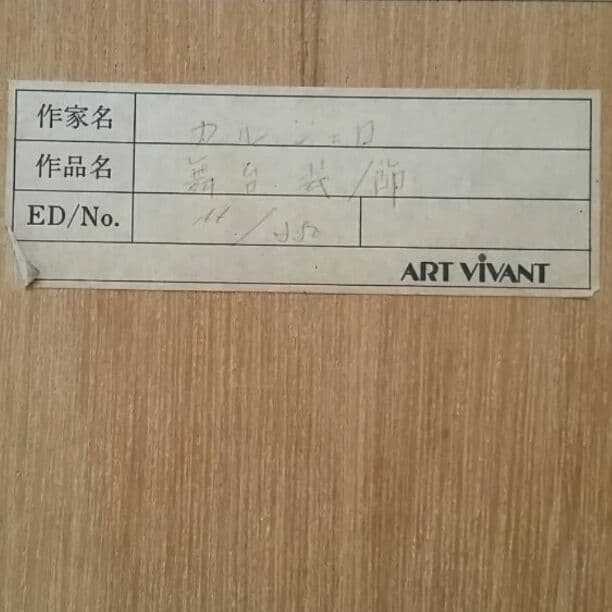 作家名 カルジェロ
作品名 舞台装飾
ED/No.
ART ViVANT